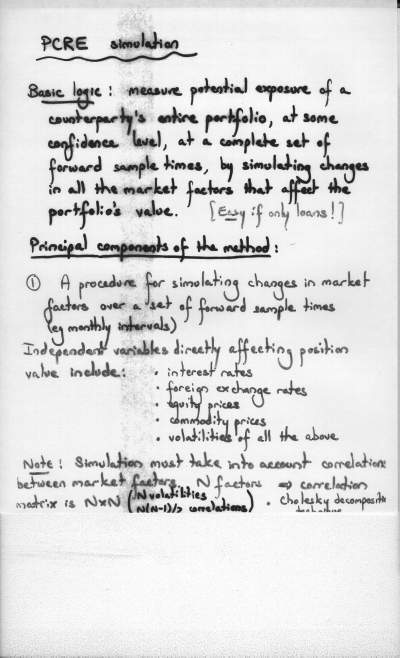 PCRE simulation
Basic logic: measure potential exposure of a
counterparty's entire portfolio, at some
confidence level, at a complete set of
forward sample times, by simulating changes
in all the market factors that affect the
portfolio's value. [Easy if only loans!]
Principal components of the method:
① A procedure for simulating changes in market
factors over a set of forward sample times
(eg monthly intervals)
Independent variables directly affecting position
value include: • interest rates
• foreign exchange rates
• equity prices
• commodity prices
• volatilities of all the above
Note: Simulation must take into account correlations
between market factors. N factors ⇒ correlation
matrix is N×N (N volatilities
N(N-1)/2 correlations) • Cholesky decomposition